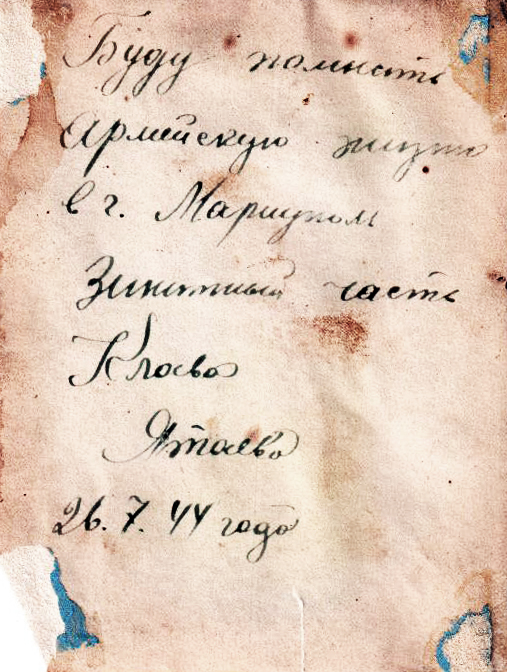 Буду помнить
Армейскую жизнь
в г. Мариуполь
Зинитный часть
Клава
Ятаева
26. 7. 44 года